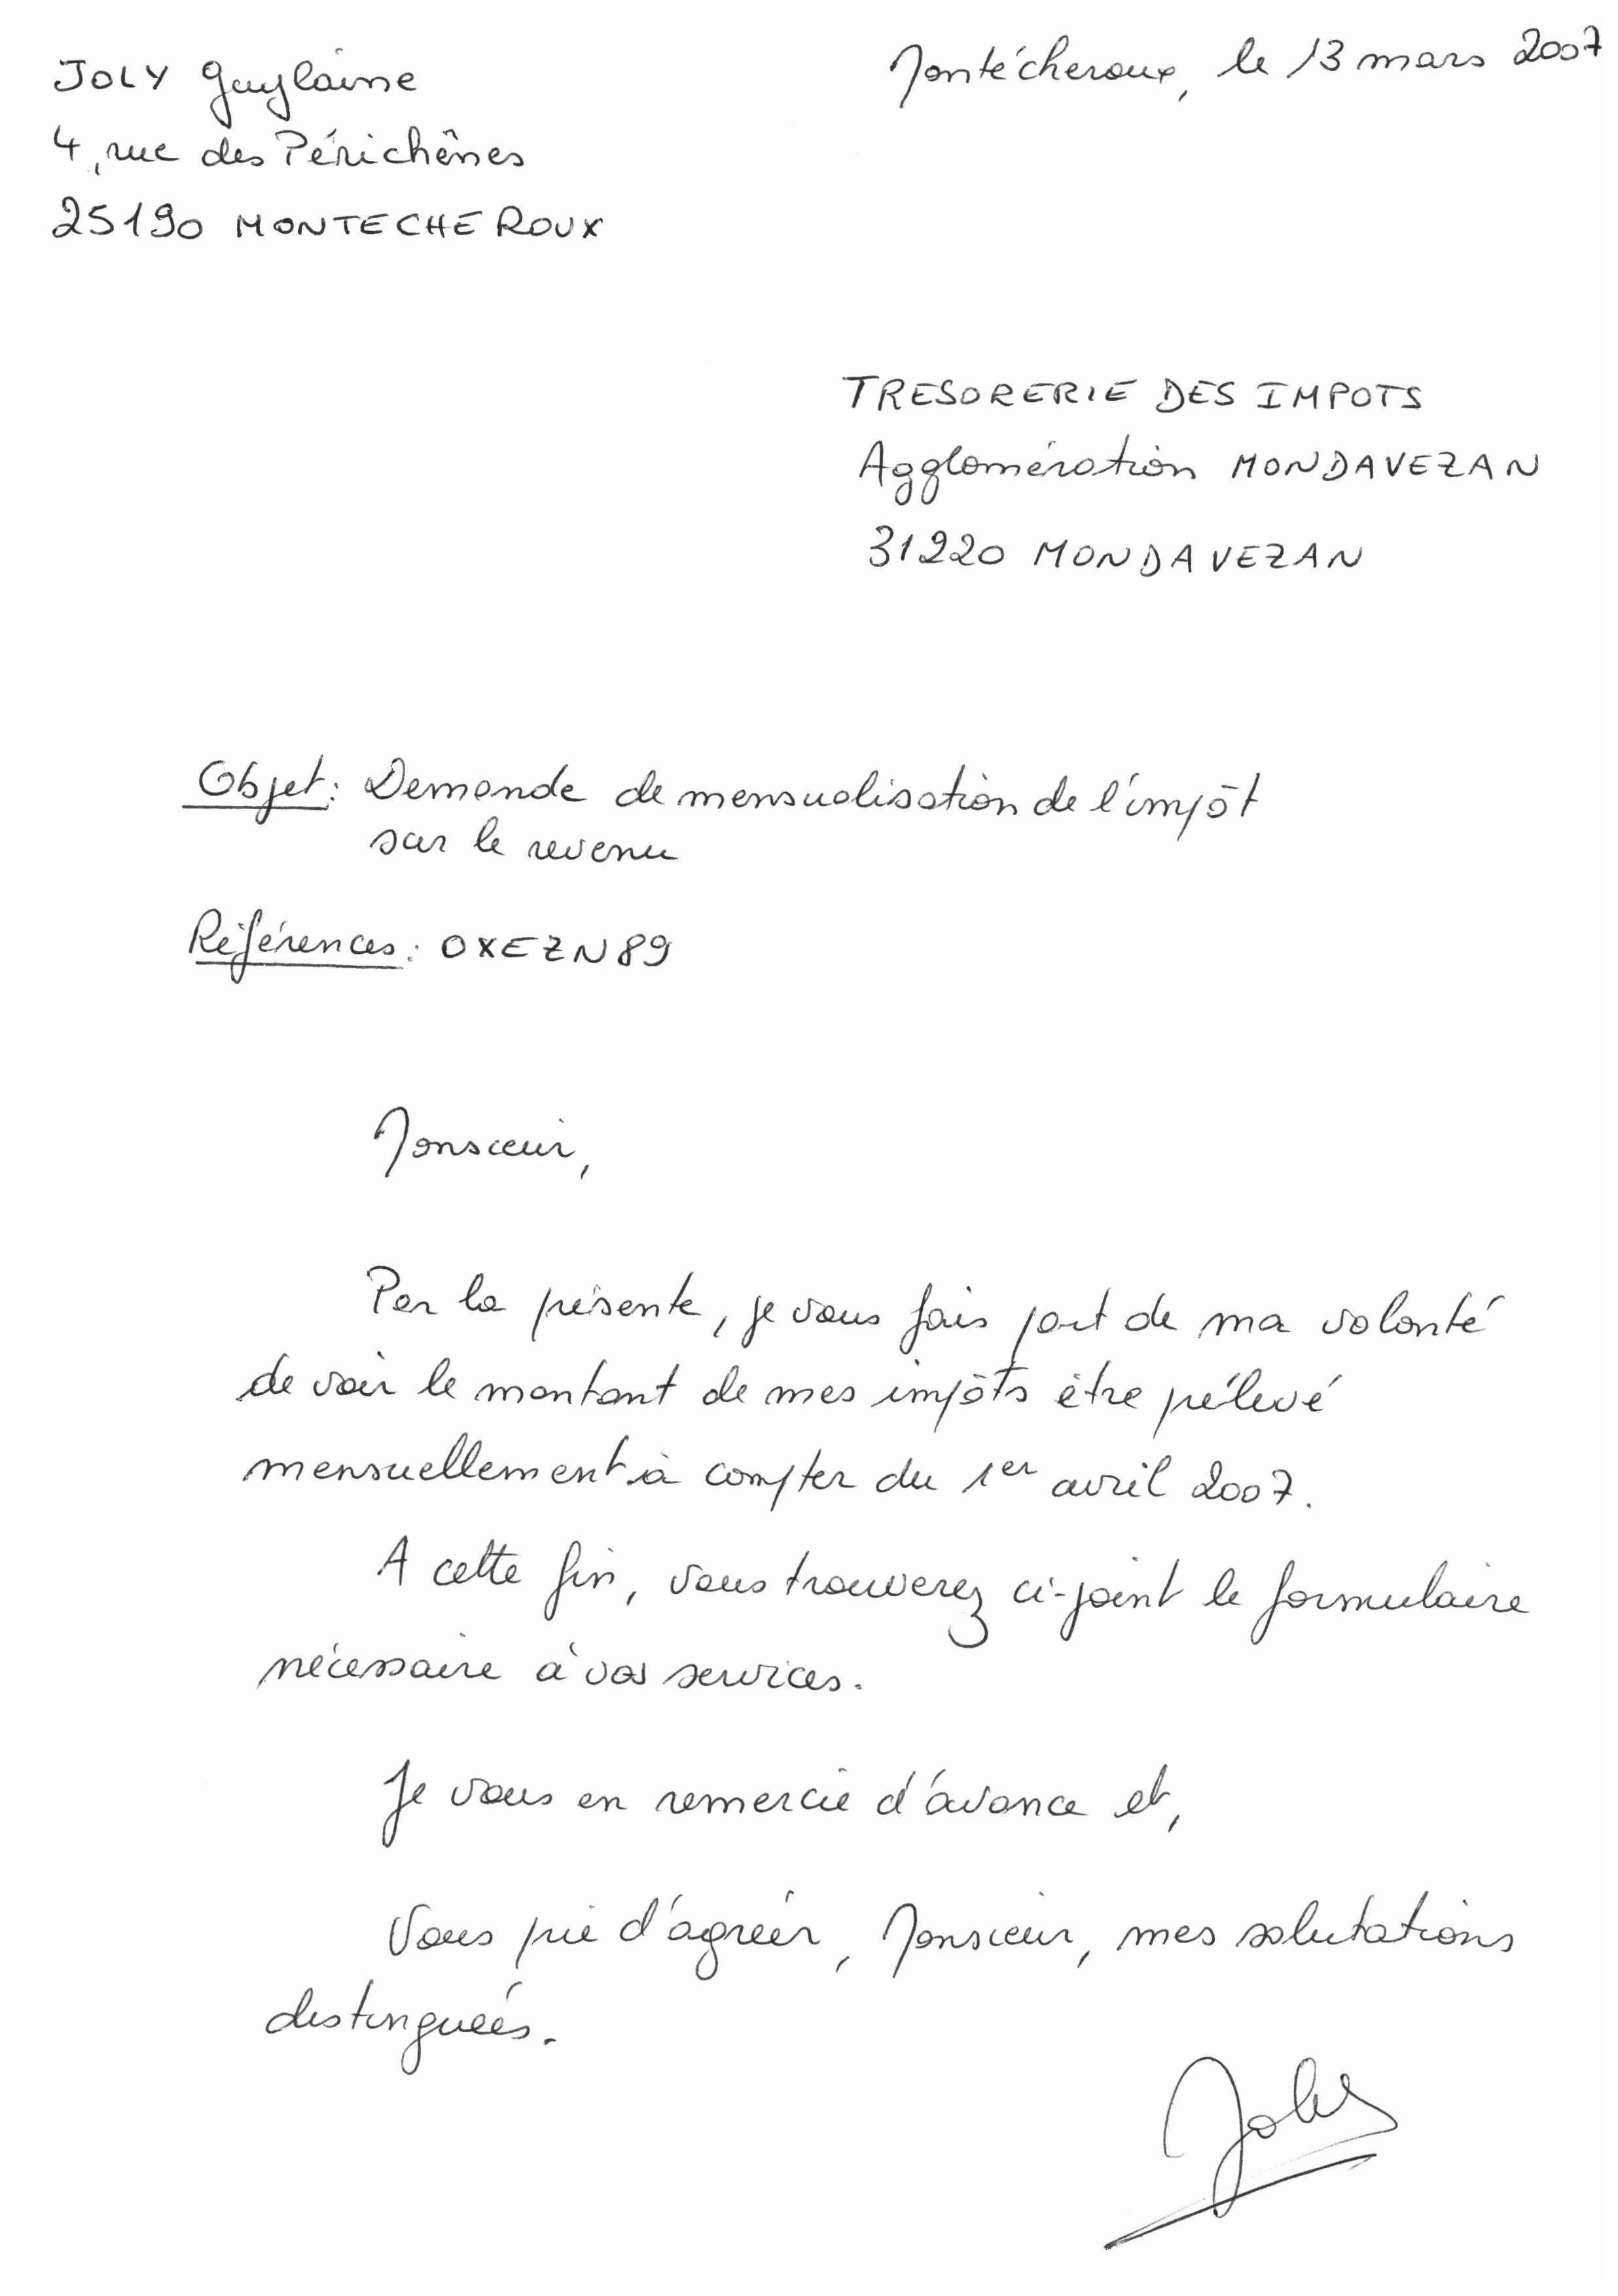 JOLY Guylaine
4, rue des Périchênes
25190 MONTECHEROUX
Montécheroux, le 13 mars 2007
TRESORERIE DES IMPOTS
Agglomération MONDAVEZAN
31220 MONDAVEZAN
Objet: Demande de mensualisation de l'impôt
sur le revenu
Références: OXEZN89
Monsieur,
Par la présente, je vous fais part de ma volonté
de voir le montant de mes impôts être prélevé
mensuellement à compter du 1er avril 2007.
A cette fin, vous trouverez ci-joint le formulaire
nécessaire à vos services.
Je vous en remercie d'avance et,
Vous prie d'agréer, Monsieur, mes salutations
distinguées.
Joly